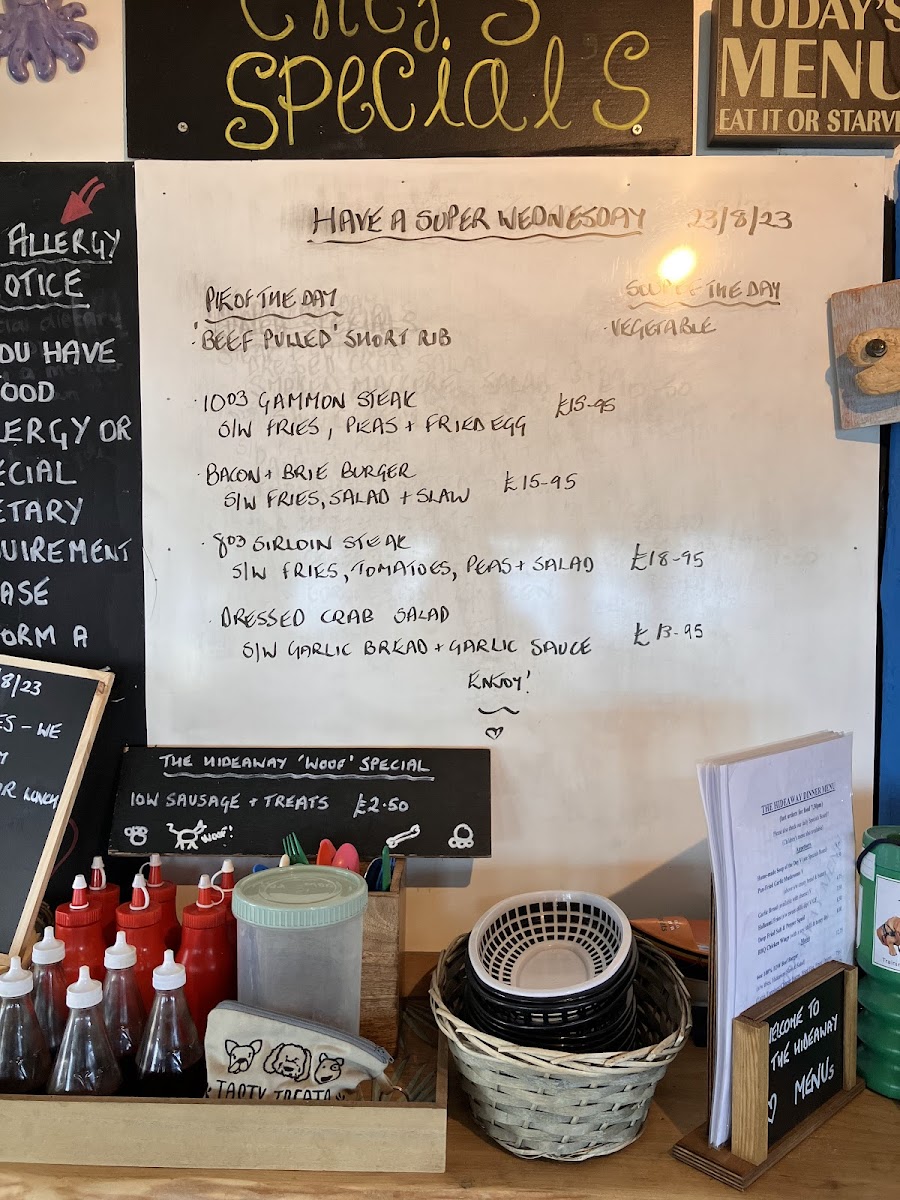 Chef's
Specials
TODAY'S
MENU
EAT IT OR STARVE
HAVE A SUPER WEDNESDAY 23/8/23
PIE OF THE DAY
'BEEF PULLED' SHORT RIB
SOUP OF THE DAY
VEGETABLE
10oz GAMMON STEAK £15-95
S/W FRIES, PEAS + FRIED EGG
BACON + BRIE BURGER £15-95
S/W FRIES, SALAD + SLAW
8oz SIRLOIN STEAK
S/W FRIES, TOMATOES, PEAS + SALAD £18-95
DRESSED CRAB SALAD
S/W GARLIC BREAD + GARLIC SAUCE £13-95
ENJOY!
ALLERGY
OTICE
OU HAVE
OOD
LERGY OR
ECIAL
ETARY
UIREMENT
ASE
FORM A
/8/23
ES - WE
OR LUNCH
THE HIDEAWAY 'WOOF' SPECIAL
LOW SAUSAGE + TREATS £2.50
WOOF!
TASTY TREATS
THE HIDEAWAY DINNER MENU
WELCOME TO
THE HIDEAWAY
MENUS